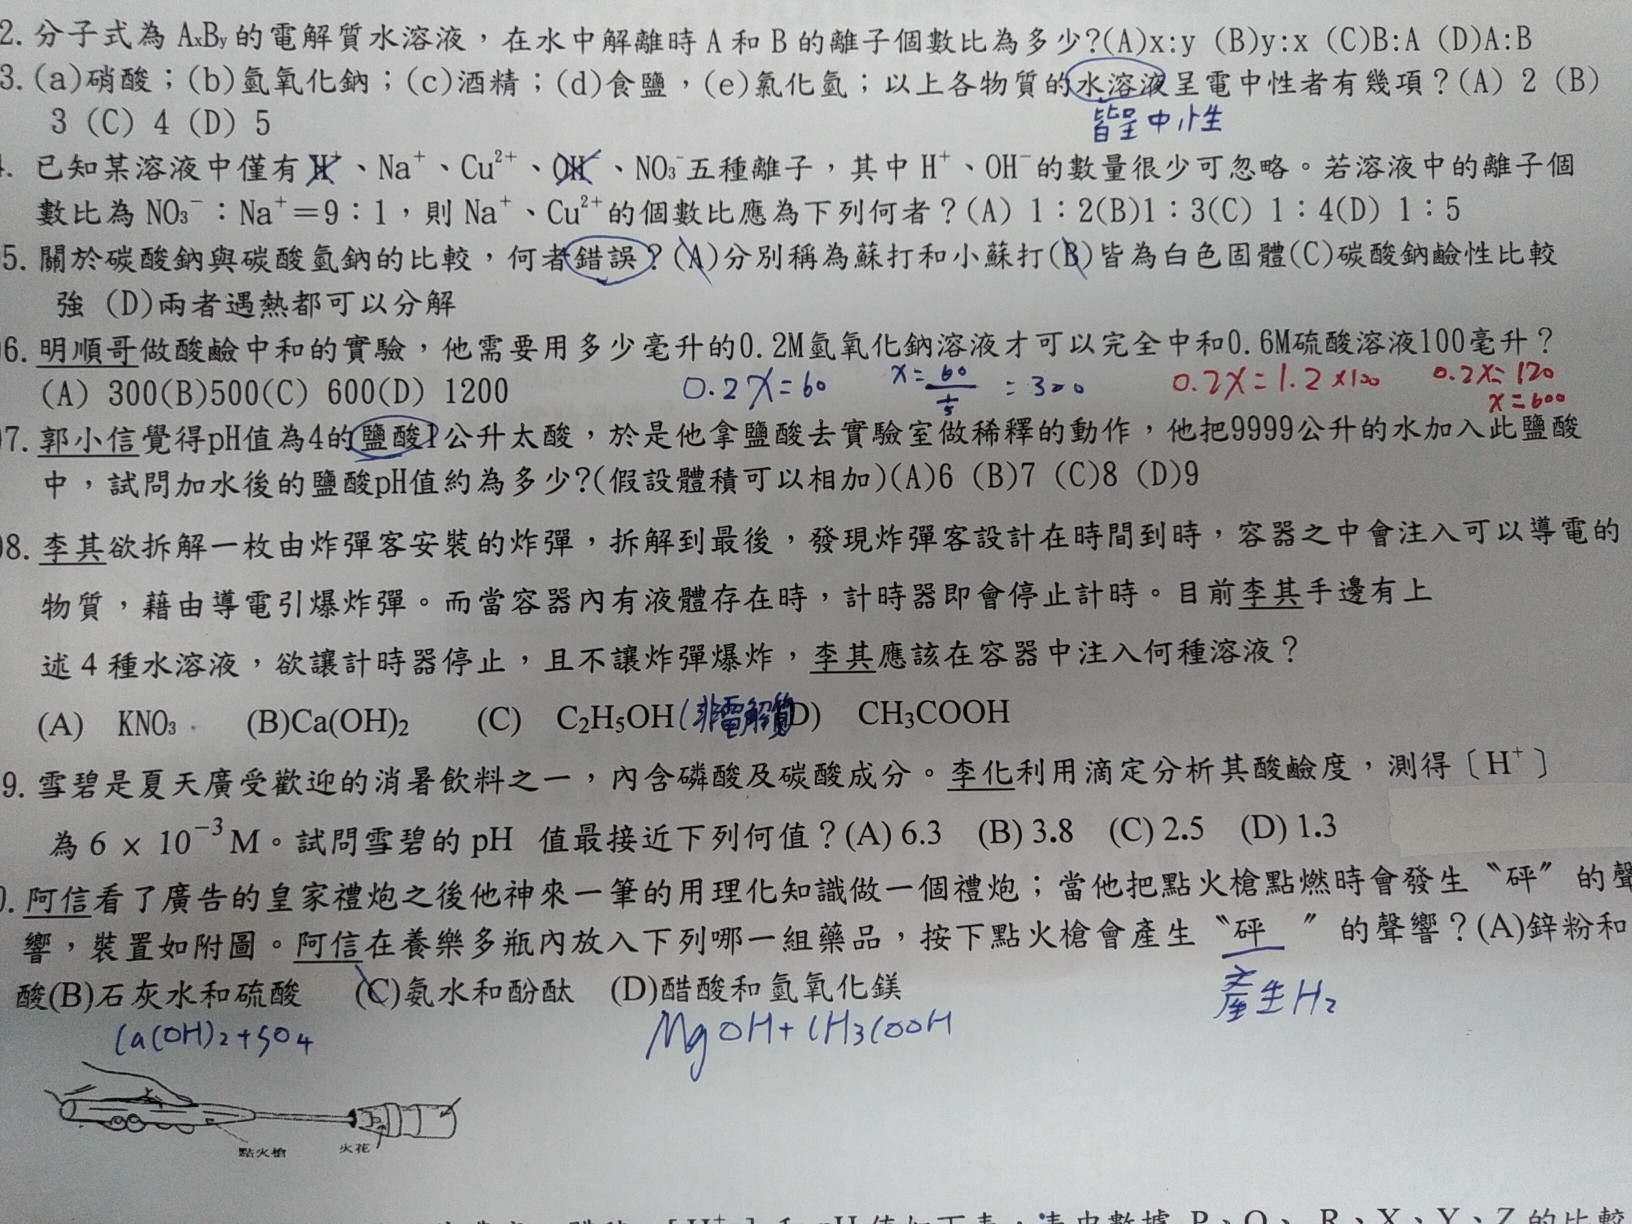 2. 分子式為 AxBy 的電解質水溶液，在水中解離時 A 和 B 的離子個數比為多少?(A)x:y (B)y:x (C)B:A (D)A:B
3. (a)硝酸；(b)氫氧化鈉；(c)酒精；(d)食鹽，(e)氯化氫；以上各物質的水溶液呈電中性者有幾項？(A) 2 (B)
3 (C) 4 (D) 5
皆呈中性
4. 已知某溶液中僅有 H⁺、Na⁺、Cu²⁺、OH⁻、NO₃⁻五種離子，其中 H⁺、OH⁻的數量很少可忽略。若溶液中的離子個
數比為 NO₃⁻：Na⁺＝9：1，則 Na⁺、Cu²⁺的個數比應為下列何者？(A) 1：2(B)1：3(C) 1：4(D) 1：5
5. 關於碳酸鈉與碳酸氫鈉的比較，何者錯誤？(A)分別稱為蘇打和小蘇打(B)皆為白色固體(C)碳酸鈉鹼性比較
強 (D)兩者遇熱都可以分解
6. 明順哥做酸鹼中和的實驗，他需要用多少毫升的0.2M氫氧化鈉溶液才可以完全中和0.6M硫酸溶液100毫升？
(A) 300(B)500(C) 600(D) 1200
0.2X=60 X=60/(1/5) =300 0.2X=1.2×100 0.2X=120
X=600
7. 郭小信覺得pH值為4的鹽酸1公升太酸，於是他拿鹽酸去實驗室做稀釋的動作，他把9999公升的水加入此鹽酸
中，試問加水後的鹽酸pH值約為多少?(假設體積可以相加)(A)6 (B)7 (C)8 (D)9
8. 李其欲拆解一枚由炸彈客安裝的炸彈，拆解到最後，發現炸彈客設計在時間到時，容器之中會注入可以導電的
物質，藉由導電引爆炸彈。而當容器內有液體存在時，計時器即會停止計時。目前李其手邊有上
述 4 種水溶液，欲讓計時器停止，且不讓炸彈爆炸，李其應該在容器中注入何種溶液？
(A) KNO₃ (B)Ca(OH)₂ (C) C₂H₅OH (非電解質 (D) CH₃COOH
9. 雪碧是夏天廣受歡迎的消暑飲料之一，內含磷酸及碳酸成分。李化利用滴定分析其酸鹼度，測得〔H⁺〕
為 6 × 10⁻³ M。試問雪碧的 pH 值最接近下列何值？(A) 6.3 (B) 3.8 (C) 2.5 (D) 1.3
0. 阿信看了廣告的皇家禮炮之後他神來一筆的用理化知識做一個禮炮；當他把點火槍點燃時會發生〝砰〞的聲
響，裝置如附圖。阿信在養樂多瓶內放入下列哪一組藥品，按下點火槍會產生〝砰 〞的聲響？(A)鋅粉和
酸(B)石灰水和硫酸 (C)氨水和酚酞 (D)醋酸和氫氧化鎂
產生H₂
Ca(OH)₂+SO₄ MgOH+CH₃COOH
點火槍 火花